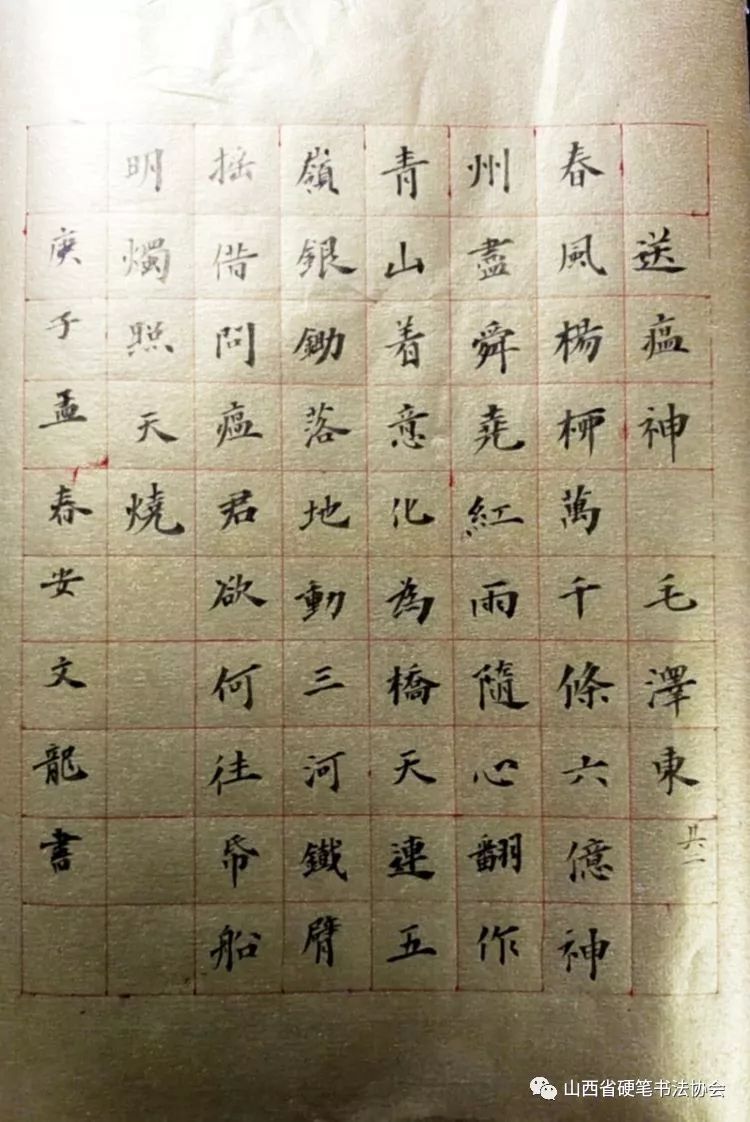 送瘟神 毛澤東 其二
春風楊柳萬千條六億神
州盡舜堯紅雨隨心翻作
青山着意化為橋天連五
嶺銀鋤落地動三河鐵臂
搖借問瘟君欲何往帋船
明燭照天燒
庚子孟春安文龍書
山西省硬笔书法协会